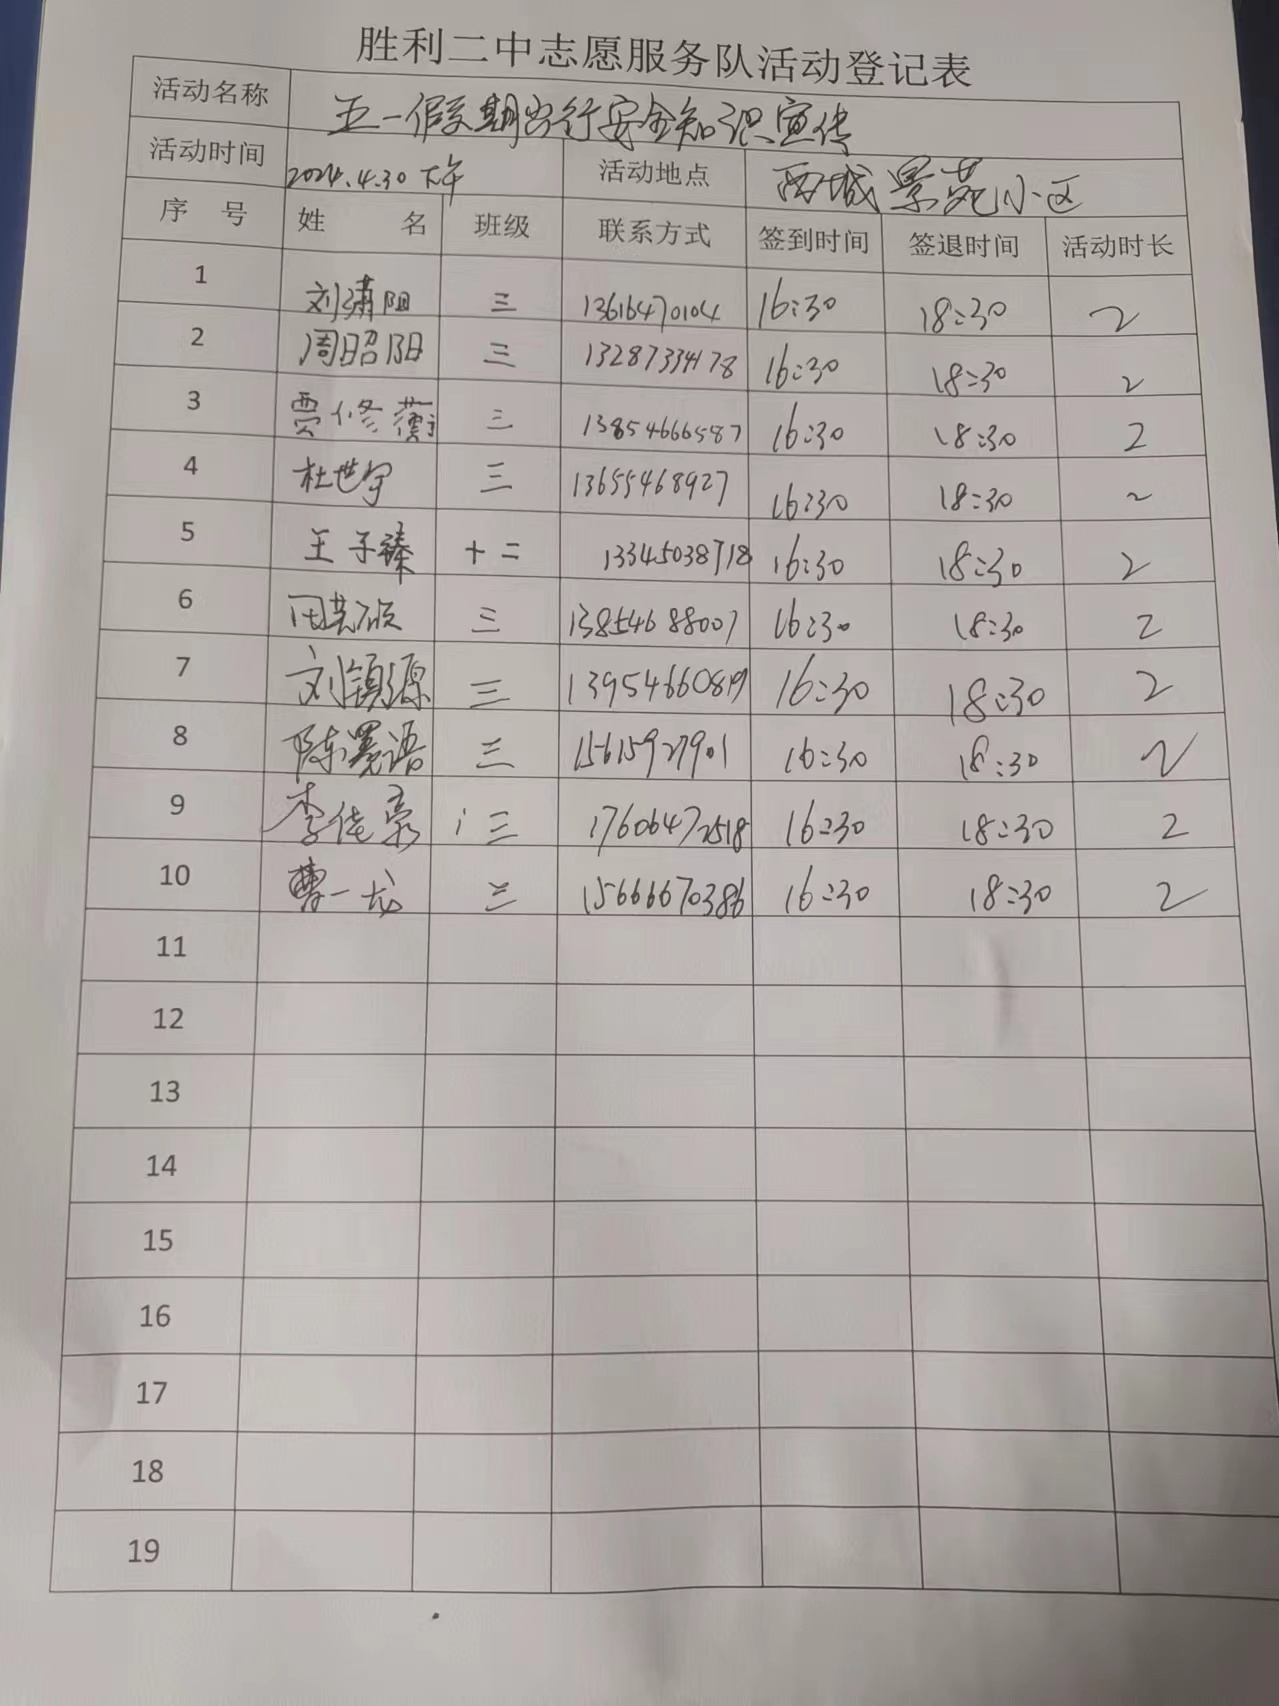 胜利二中志愿服务队活动登记表
活动名称 五一假期出行安全知识宣传
活动时间 2024.4.30 下午 活动地点 西城景苑小区
序 号 姓 名 班级 联系方式 签到时间 签退时间 活动时长
1 刘潇阳 三 13616470104 16:30 18:30 2
2 周昭阳 三 13287334178 16:30 18:30 2
3 贾修蘅 三 13854666587 16:30 18:30 2
4 杜世宇 三 13655468927 16:30 18:30 2
5 王子臻 十二 13345038718 16:30 18:30 2
6 三 13854688007 16:30 18:30 2
7 刘镇源 三 13954660819 16:30 18:30 2
8 三 15615927901 16:30 18:30 2
9 李佳豪 三 17606472518 16:30 18:30 2
10 曹一龙 三 15666670386 16:30 18:30 2
11
12
13
14
15
16
17
18
19